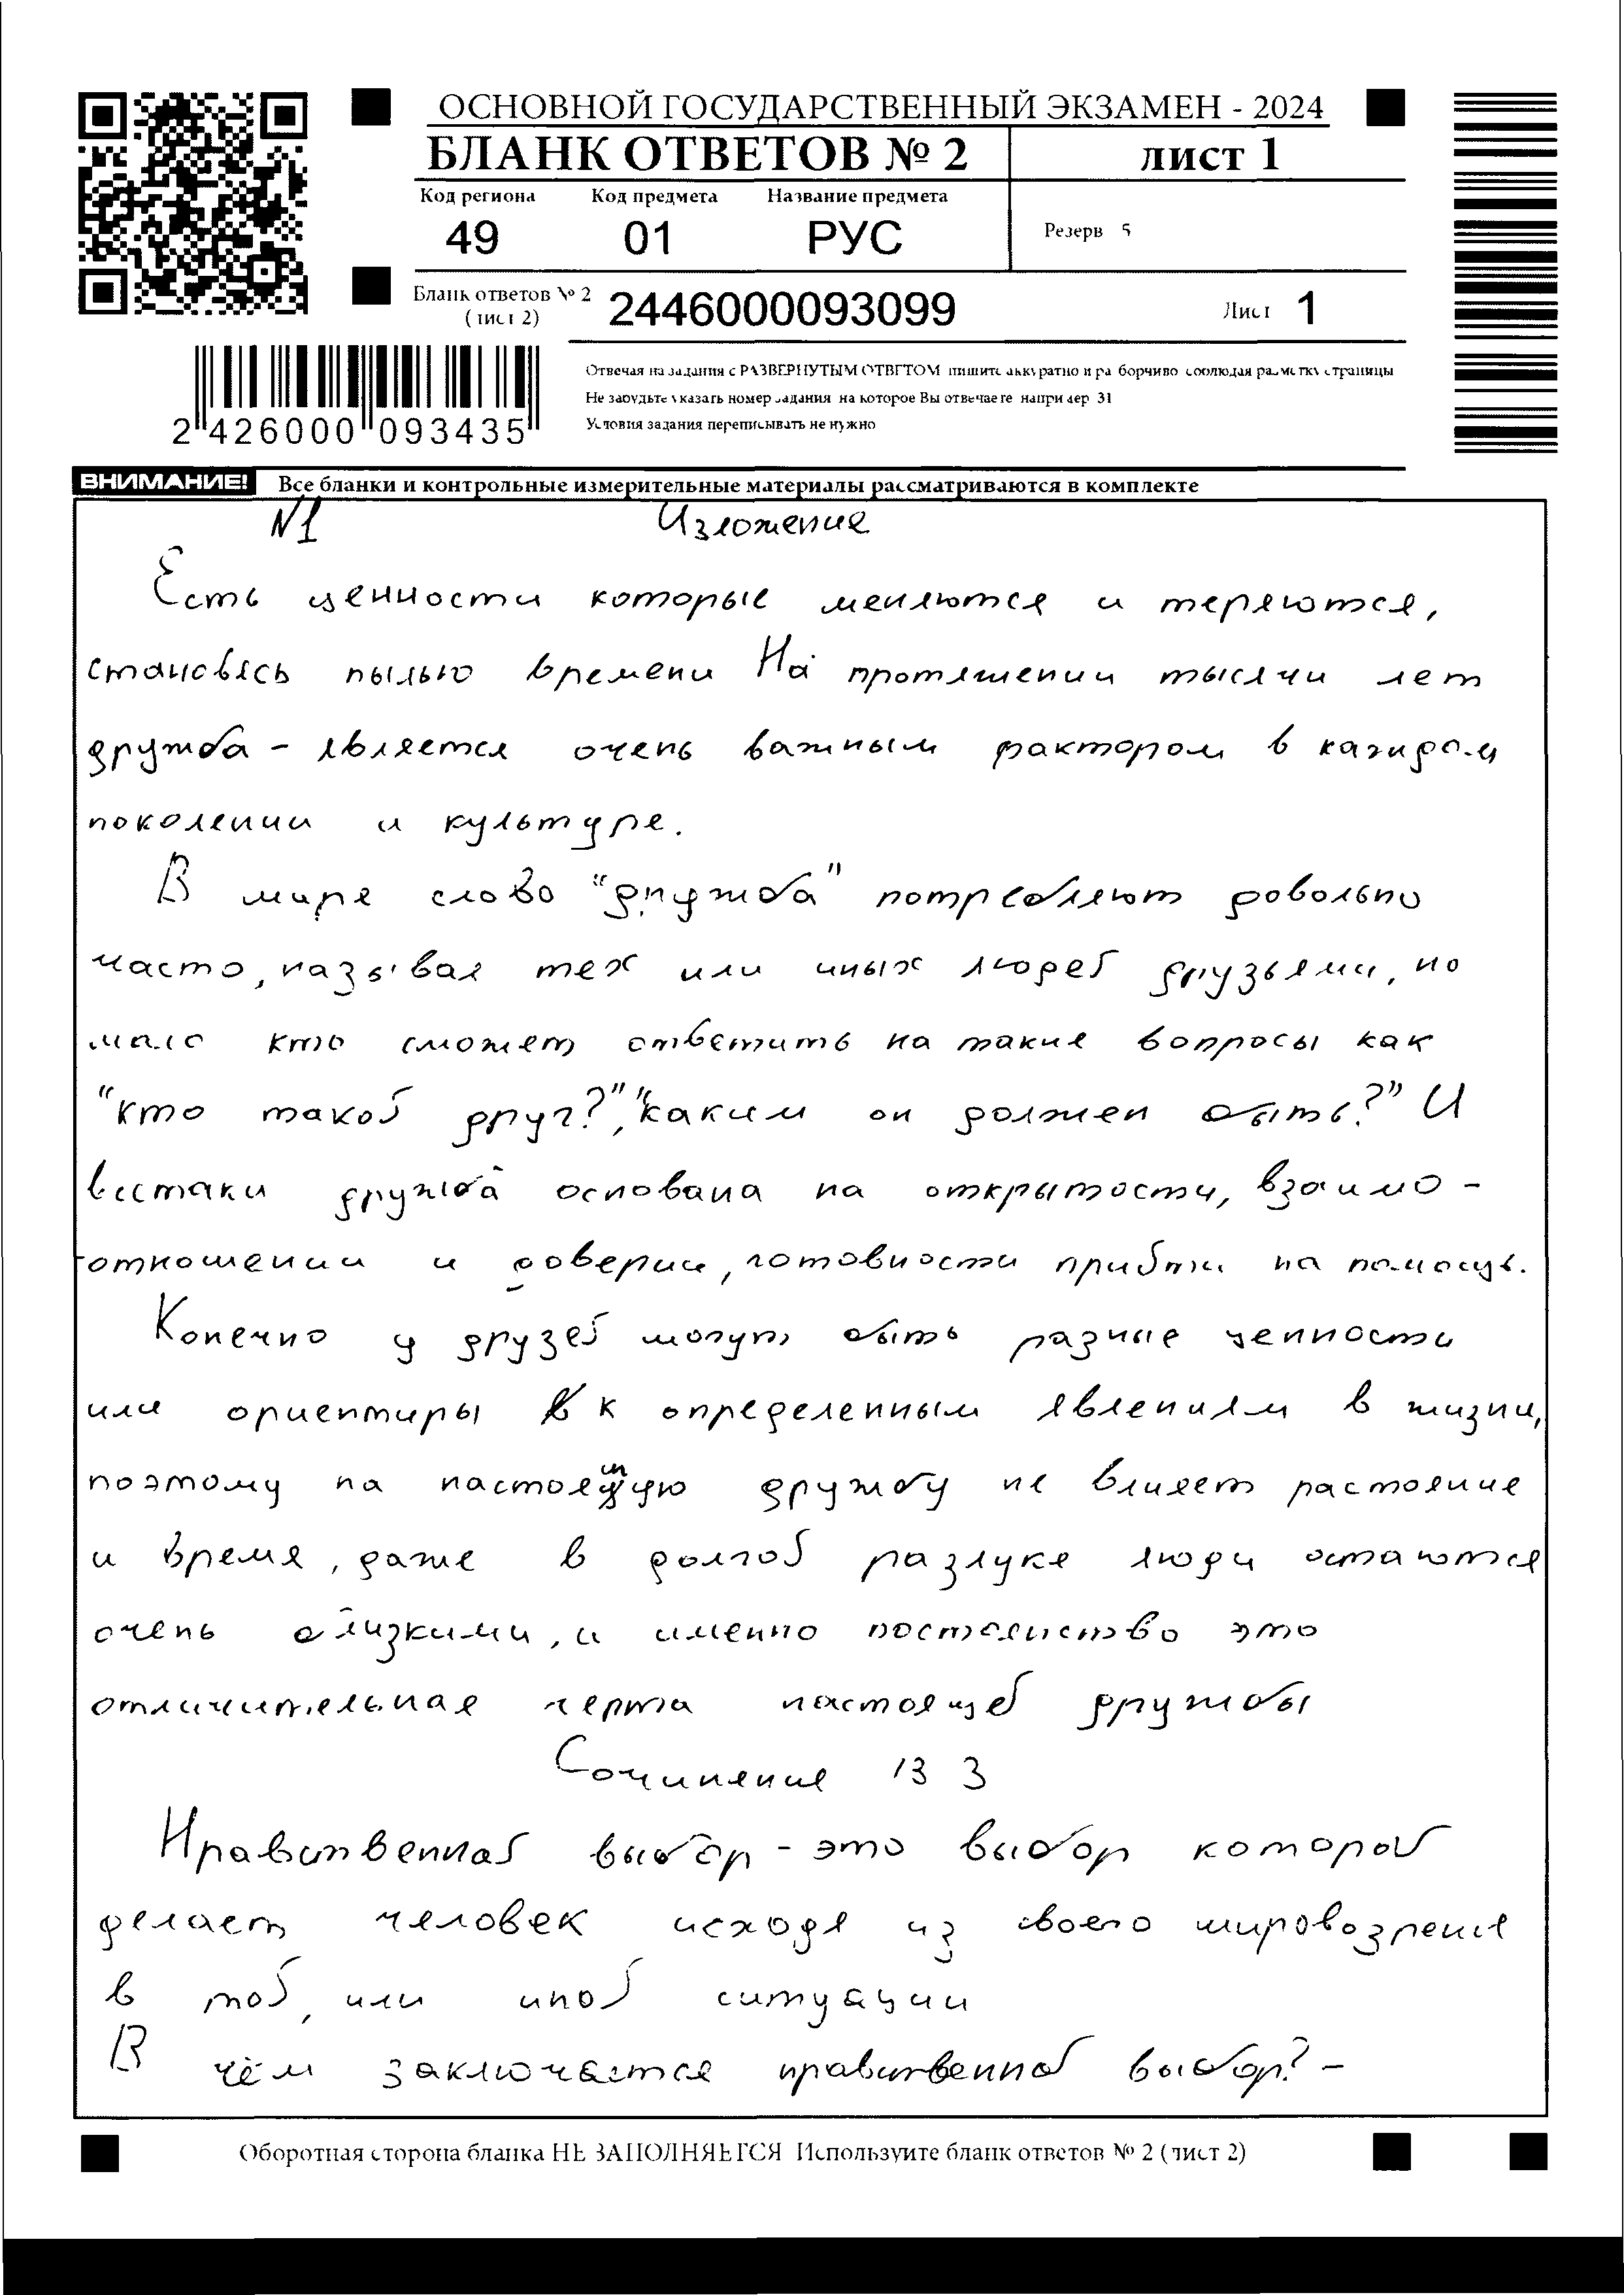 ОСНОВНОЙ ГОСУДАРСТВЕННЫЙ ЭКЗАМЕН - 2024
БЛАНК ОТВЕТОВ № 2
лист 1
Код региона Код предмета Название предмета
49 01 РУС
Резерв 5
Бланк ответов № 2
(лист 2)
2446000093099
Лист 1
2 426000 093435
Отвечая на задания с РАЗВЕРНУТЫМ ОТВЕТОМ пишите аккуратно и разборчиво соблюдая разметку страницы
Не забудьте указать номер задания на которое Вы отвечаете например 31
Условия задания переписывать не нужно
ВНИМАНИЕ! Все бланки и контрольные измерительные материалы рассматриваются в комплекте
N1 Изложение
Есть ценности которые меняются и теряются,
становясь пылью времени На протяшении тысячи лет
дружба - является очень важным фактором в каждом
поколении и культуре.
В мире слово "дружба" потребляют довольно
часто, называя тех или иных людей друзьями, но
мало кто сможет ответить на такие вопросы как
"кто такой друг?", "каким он должен быть?" И
всетаки дружба основана на открытости, взаимо-
отношении и доверии, готовности прийти на помощь.
Конечно у друзей могут быть разные ценности
или ориентиры к определенным явлениям в жизни,
поэтому на настоящую дружбу не влияет растояние
и время, даже в долгой разлуке люди остаются
очень близкими, и именно постоянство это
отличительная черта настоящей дружбы
Сочинение 13 3
Нравственной выбор - это выбор которой
делает человек исходя из своего мировозрения
в той, или иной ситуации
В чём заключается нравственной выбор? -
Оборотная сторона бланка НЕ ЗАПОЛНЯЕТСЯ Используйте бланк ответов № 2 (лист 2)